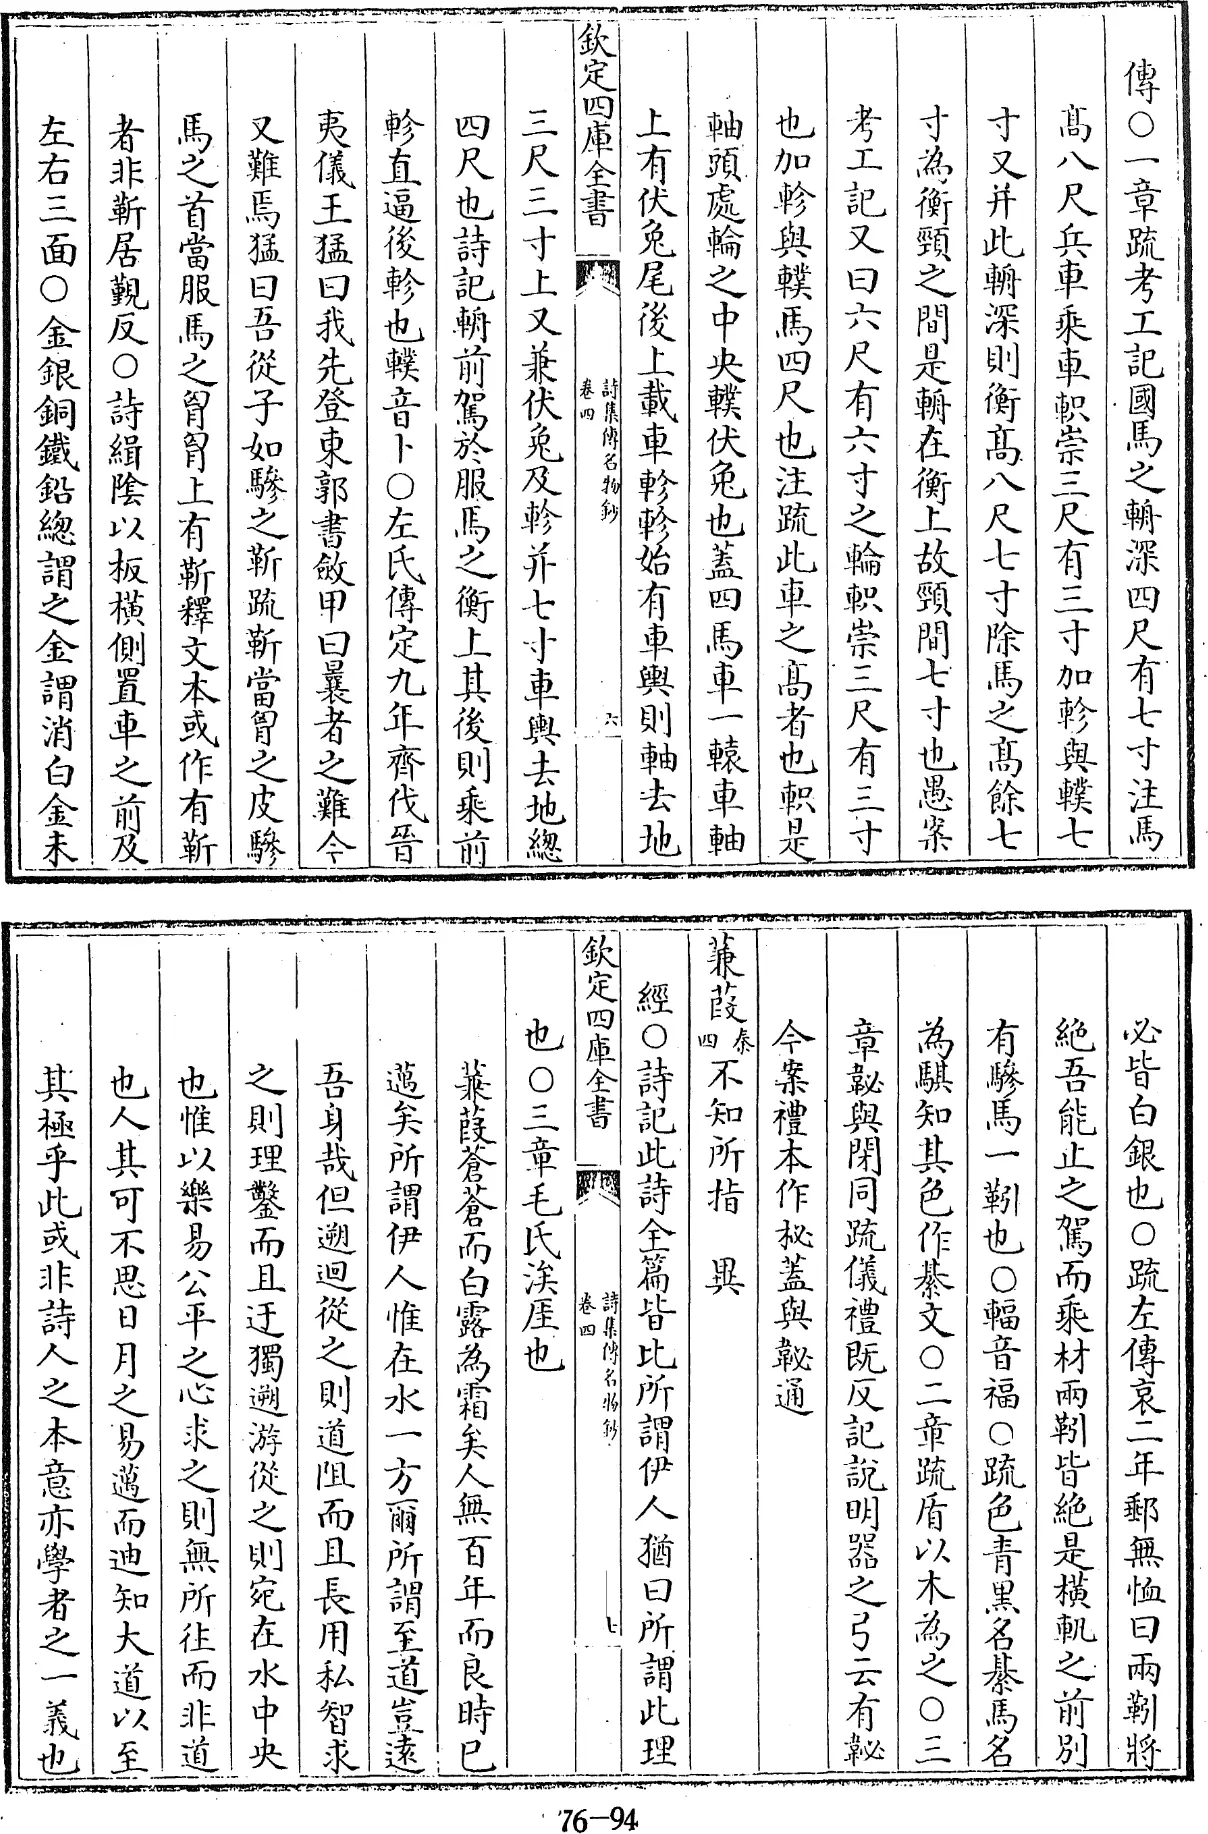 傳○一章疏考工記國馬之輈深四尺有七寸注馬
高八尺兵車乘車軹崇三尺有三寸加軫與轐七
寸又并此輈深則衡高八尺七寸除馬之高餘七
寸為衡頸之間是輈在衡上故頸間七寸也愚案
考工記又曰六尺有六寸之輪軹崇三尺有三寸
也加軫與轐焉四尺也注疏此車之高者也軹是
軸頭處輪之中央轐伏兔也蓋四馬車一轅車軸
上有伏兔尾後上載車軫軫始有車輿則軸去地
欽定四庫全書
詩集傳名物鈔
卷四
六
三尺三寸上又兼伏兔及軫并七寸車輿去地總
四尺也詩記輈前駕於服馬之衡上其後則乘前
軫直逼後軫也轐音卜○左氏傳定九年齊伐晉
夷儀王猛曰我先登東郭書斂甲曰曩者之難今
又難焉猛曰吾從子如驂之靳疏靳當胷之皮驂
馬之首當服馬之胷胷上有靳釋文本或作有靳
者非靳居覲反○詩緝陰以板橫側置車之前及
左右三面○金銀銅鐵鉛總謂之金謂消白金未
必皆白銀也○疏左傳哀二年郵無恤曰兩靷將
絶吾能止之駕而乘材兩靷皆絶是橫軓之前別
有驂馬一靷也○輻音福○疏色青黑名綦馬名
為騏知其色作綦文○二章疏盾以木為之○三
章韍與閉同疏儀禮既夕記說明器之弓云有韍
今案禮本作柲蓋與韍通
蒹葭秦四不知所指 異
經○詩記此詩全篇皆比所謂伊人猶曰所謂此理
欽定四庫全書
詩集傳名物鈔
卷四
七
也○三章毛氏涘厓也
蒹葭蒼蒼而白露為霜矣人無百年而良時已
邁矣所謂伊人惟在水一方爾所謂至道豈遠
吾身哉但遡迴從之則道阻而且長用私智求
之則理鑿而且迂獨遡游從之則宛在水中央
也惟以樂易公平之心求之則無所往而非道
也人其可不思日月之易邁而迪知大道以至
其極乎此或非詩人之本意亦學者之一義也
76-94